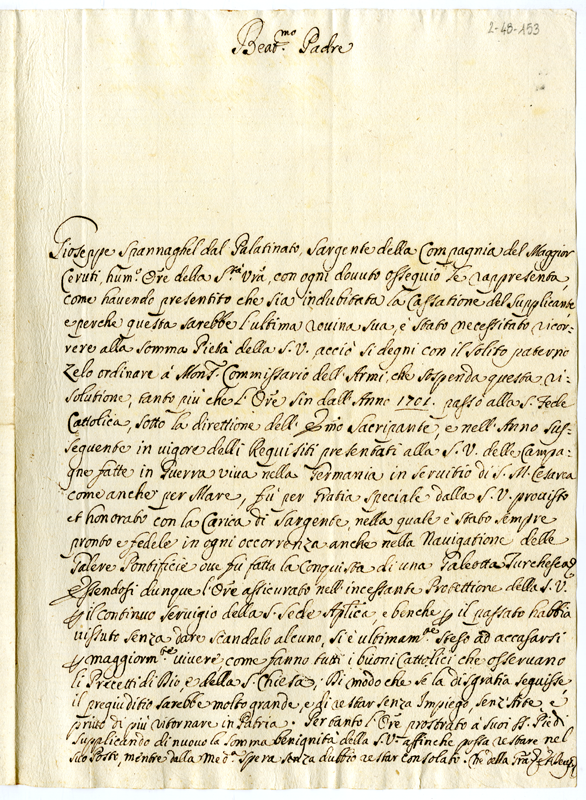 2-48-153
Beat.mo Padre
Gioseppe Spannaghel dal Palatinato, Sargente della Compagnia del Maggior
Ceruti, hum.o Ore della S.ta Vra, con ogni dovuto ossequio Le rappresenta,
come havendo presentito che sia indubitata la Cassatione del Supplicante
e perche questa sarebbe l'ultima rovina sua, è stato necessitato ricor-
rere alla somma Pietà della S.V. acciò si degni con il solito paterno
Zelo ordinare à Mons.r Commissario dell'Armi, che sospenda questa ri-
solutione, tanto più che l'Ore sin dall'Anno 1701. passò alla S. Fede
Cattolica, sotto la direttione dell'Emo Sacripante, e nell'Anno sus-
sequente in vigore delli Requisiti presentati alla S.V. delle Campa-
gne fatte in Guerra viva nella Germania in servitio di S.M. Cesarea
come anche per Mare, fù per Gratia speciale dalla S.V. provisto
et honorato con la Carica di Sargente, nella quale è stato sempre
pronto e fedele in ogni occorrenza anche nella Navigatione delle
Galere Pontificie ove fù fatta la Conquista di una Galeotta Turchesca
Essendosi dunque l'Ore assicurato nell'incessante Protettione della S.V.
p il continuo servigio della S. Sede Aplica, e benche p il passato habbia
vissuto senza dare scandalo alcuno, si è ultimam.te steso ad accasarsi
p maggiorm.te vivere come fanno tutti i buoni Cattolici che osservano
li Precetti di Dio, e della S. Chiesa; Di modo che se la disgratia seguisse
il pregiuditio sarebbe molto grande, e di restar senza Impiego, senz'Arte, e
privo di più ritornare in Patria. Per tanto l'Ore prostrato a suoi SS. Piedi
supplicando di nuovo la somma benignità della S.V. affinche possa restare nel
suo Posto, mentre dalla med.a spera senza dubbio restar consolato. Che della Gra